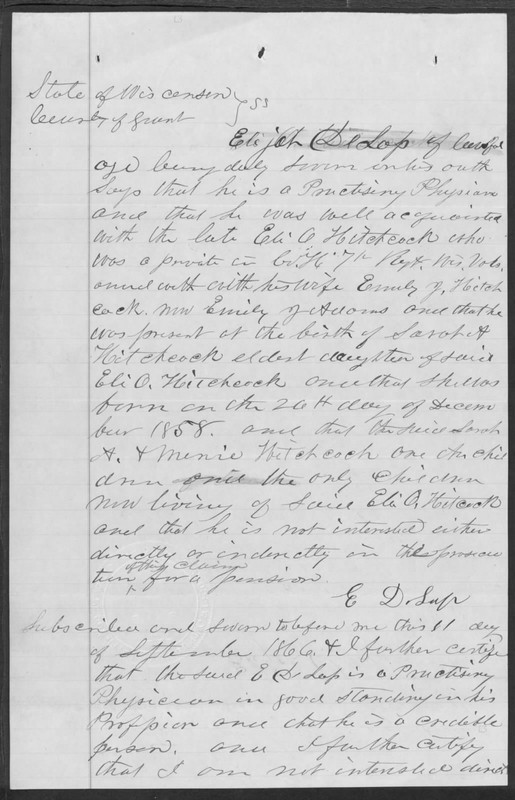 State of Wisconsin } SS
County of Grant
Elijah DeLap of lawful
age being duly sworn in his oath
Says that he is a Practising Physician
and that he was well acquainted
with the late Eli O. Hitchcock who
was a private in Co "H" 7th Regt. Wis. Vols.
and with with his wife Emily J. Hitch
cock. now Emily J Adams and that he
was present at the birth of Sarah A
Hitchcock eldest daughter of said
Eli O. Hitchcock and that she was
born on the 26th day of Decem
ber 1858. and that the said Sarah
A. & Hitchcock are the chil
dren and the only children
now living of said Eli O. Hitchcock
and that he is not interested either
directly or indirectly in the prosecu
of this claim
tion ^ for a pension.
E DeLap
Subscribed and sworn to before me this 11 day
of September 1866. & I further certify
that the said E DeLap is a Practising
Physician in good standing in his
Profession and that he is a credible
person. and I further certify
that I am not interested direct